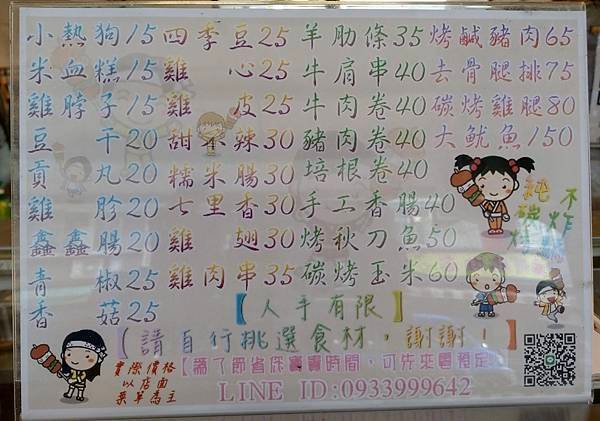 小熱狗15 四季豆25 羊肋條35 烤鹹豬肉65
米血糕15 雞心25 牛肩串40 去骨腿排75
雞脖子15 雞皮25 牛肉卷40 碳烤雞腿80
豆干20 甜不辣30 豬肉卷40 大魷魚150
貢丸20 糯米腸30 培根卷40
雞胗20 七里香30 手工香腸40
鑫鑫腸20 雞翅30 烤秋刀魚50
青椒25 雞肉串35 碳烤玉米60
香菇25
純碳烤
不炸
【人手有限】
【請自行挑選食材,謝謝!】
實際價格
以店面
菜單為主
【為了節省您寶貴時間,可先來電預定】
LINE ID:0933999642